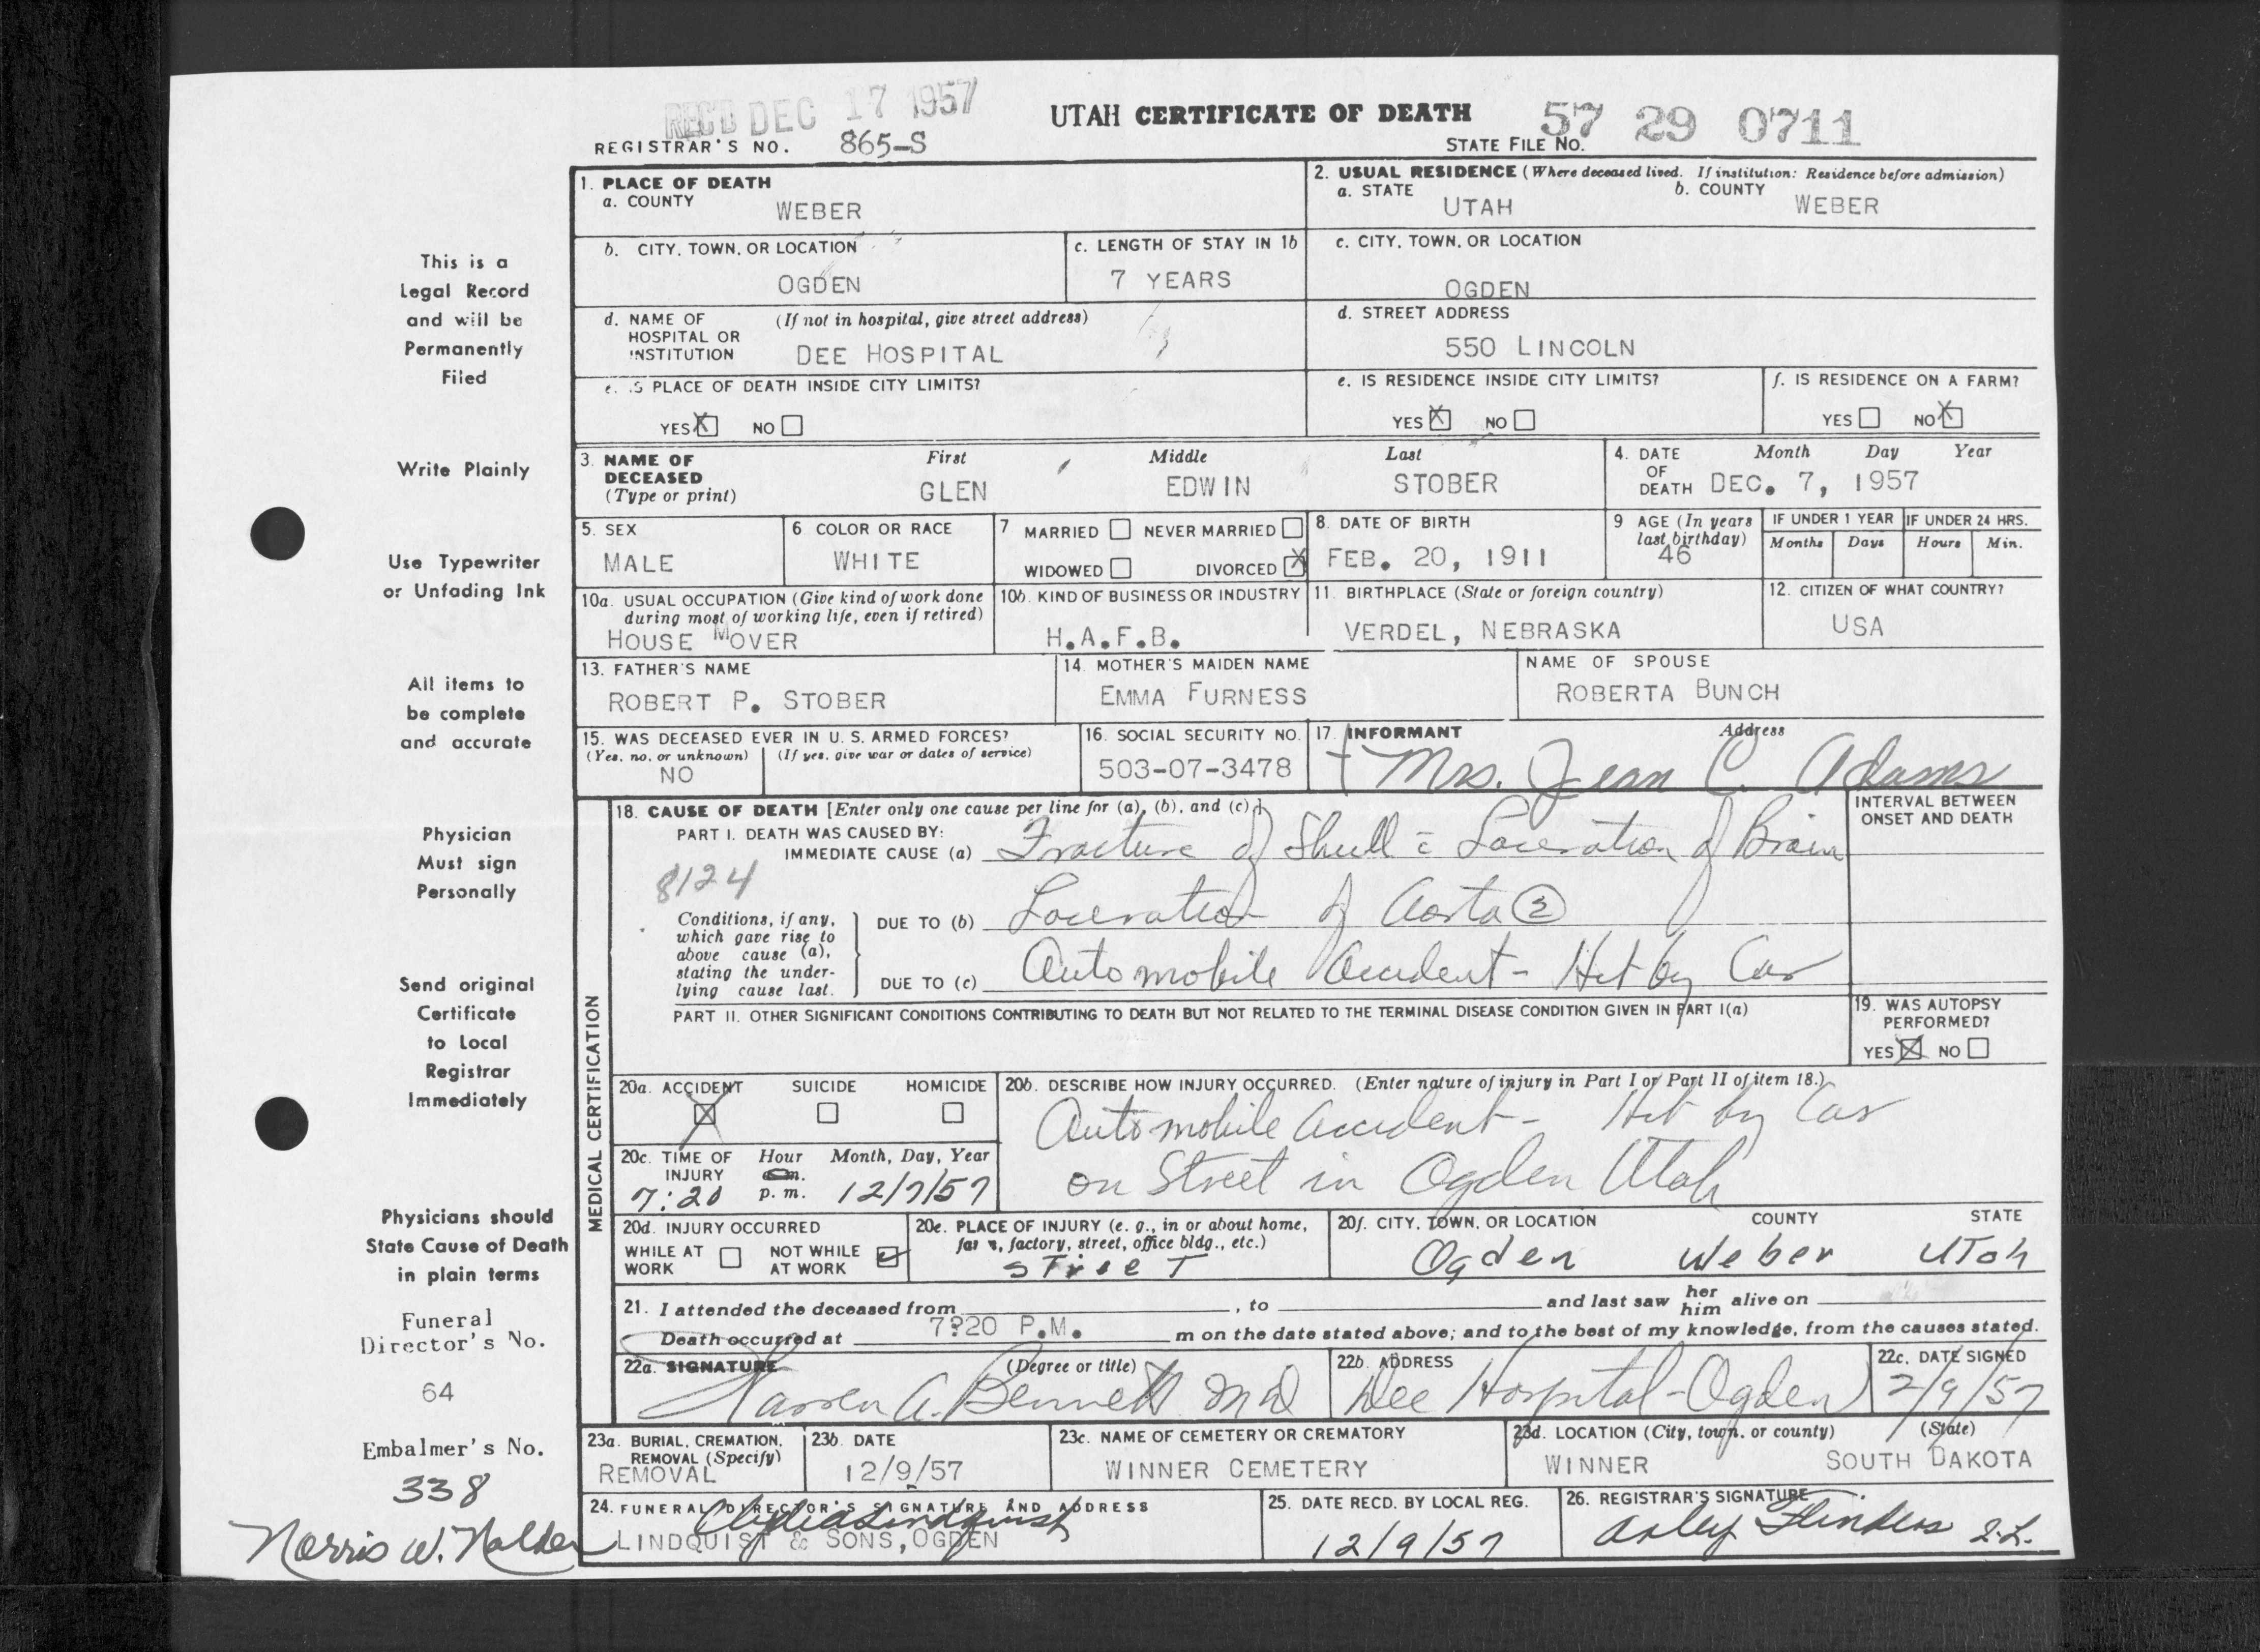 REC'D DEC 17 1957
UTAH CERTIFICATE OF DEATH
57 29 0711
REGISTRAR'S NO. 865-S
STATE FILE NO.
1. PLACE OF DEATH
a. COUNTY
WEBER
2. USUAL RESIDENCE (Where deceased lived. If institution: Residence before admission)
a. STATE
UTAH
b. COUNTY
WEBER
b. CITY, TOWN, OR LOCATION
OGDEN
c. LENGTH OF STAY IN 1b
7 YEARS
c. CITY, TOWN, OR LOCATION
OGDEN
d. NAME OF HOSPITAL OR INSTITUTION
(If not in hospital, give street address)
DEE HOSPITAL
d. STREET ADDRESS
550 LINCOLN
e. IS PLACE OF DEATH INSIDE CITY LIMITS?
YES X NO
e. IS RESIDENCE INSIDE CITY LIMITS?
YES X NO
f. IS RESIDENCE ON A FARM?
YES NO X
3. NAME OF DECEASED
(Type or print)
First
GLEN
Middle
EDWIN
Last
STOBER
4. DATE OF DEATH
Month Day Year
DEC. 7, 1957
5. SEX
MALE
6 COLOR OR RACE
WHITE
7 MARRIED NEVER MARRIED
WIDOWED DIVORCED X
8. DATE OF BIRTH
FEB. 20, 1911
9 AGE (In years last birthday)
46
IF UNDER 1 YEAR
Months Days
IF UNDER 24 HRS.
Hours Min.
10a. USUAL OCCUPATION (Give kind of work done during most of working life, even if retired)
HOUSE MOVER
10b. KIND OF BUSINESS OR INDUSTRY
H.A.F.B.
11. BIRTHPLACE (State or foreign country)
VERDEL, NEBRASKA
12. CITIZEN OF WHAT COUNTRY?
USA
13. FATHER'S NAME
ROBERT P. STOBER
14. MOTHER'S MAIDEN NAME
EMMA FURNESS
NAME OF SPOUSE
ROBERTA BUNCH
15. WAS DECEASED EVER IN U. S. ARMED FORCES?
(Yes, no, or unknown) (If yes, give war or dates of service)
NO
16. SOCIAL SECURITY NO.
503-07-3478
17. INFORMANT Address
Mrs. Jean C. Adams
18. CAUSE OF DEATH [Enter only one cause per line for (a), (b), and (c).]
PART I. DEATH WAS CAUSED BY:
IMMEDIATE CAUSE (a) Fracture of Skull c Laceration of Brain
8124
Conditions, if any, which gave rise to above cause (a), stating the underlying cause last.
DUE TO (b) Laceration of Aorta 2
DUE TO (c) Automobile Accident - Hit by Car
INTERVAL BETWEEN ONSET AND DEATH
PART II. OTHER SIGNIFICANT CONDITIONS CONTRIBUTING TO DEATH BUT NOT RELATED TO THE TERMINAL DISEASE CONDITION GIVEN IN PART I(a)
19. WAS AUTOPSY PERFORMED?
YES X NO
MEDICAL CERTIFICATION
20a. ACCIDENT SUICIDE HOMICIDE
X
20b. DESCRIBE HOW INJURY OCCURRED. (Enter nature of injury in Part I or Part II of item 18.)
Automobile Accident - Hit by Car
on Street in Ogden Utah
20c. TIME OF INJURY
Hour Month, Day, Year
7:20 p. m. 12/7/57
20d. INJURY OCCURRED
WHILE AT WORK NOT WHILE AT WORK
20e. PLACE OF INJURY (e. g., in or about home, farm, factory, street, office bldg., etc.)
Street
20f. CITY, TOWN, OR LOCATION COUNTY STATE
Ogden Weber Utah
21. I attended the deceased from , to and last saw her him alive on
Death occurred at 7?20 P.M. m on the date stated above; and to the best of my knowledge, from the causes stated.
22a. SIGNATURE (Degree or title)
A. Bennett MD
22b. ADDRESS
Dee Hospital - Ogden
22c. DATE SIGNED
2/9/57
23a. BURIAL, CREMATION, REMOVAL (Specify)
REMOVAL
23b. DATE
12/9/57
23c. NAME OF CEMETERY OR CREMATORY
WINNER CEMETERY
23d. LOCATION (City, town, or county) (State)
WINNER SOUTH DAKOTA
24. FUNERAL DIRECTOR'S SIGNATURE AND ADDRESS
LINDQUIST & SONS, OGDEN
25. DATE RECD. BY LOCAL REG.
12/9/57
26. REGISTRAR'S SIGNATURE
Flinders
This is a
Legal Record
and will be
Permanently
Filed
Write Plainly
Use Typewriter
or Unfading Ink
All items to
be complete
and accurate
Physician
Must sign
Personally
Send original
Certificate
to Local
Registrar
Immediately
Physicians should
State Cause of Death
in plain terms
Funeral
Director's No.
64
Embalmer's No.
338
Norris W. Nalder